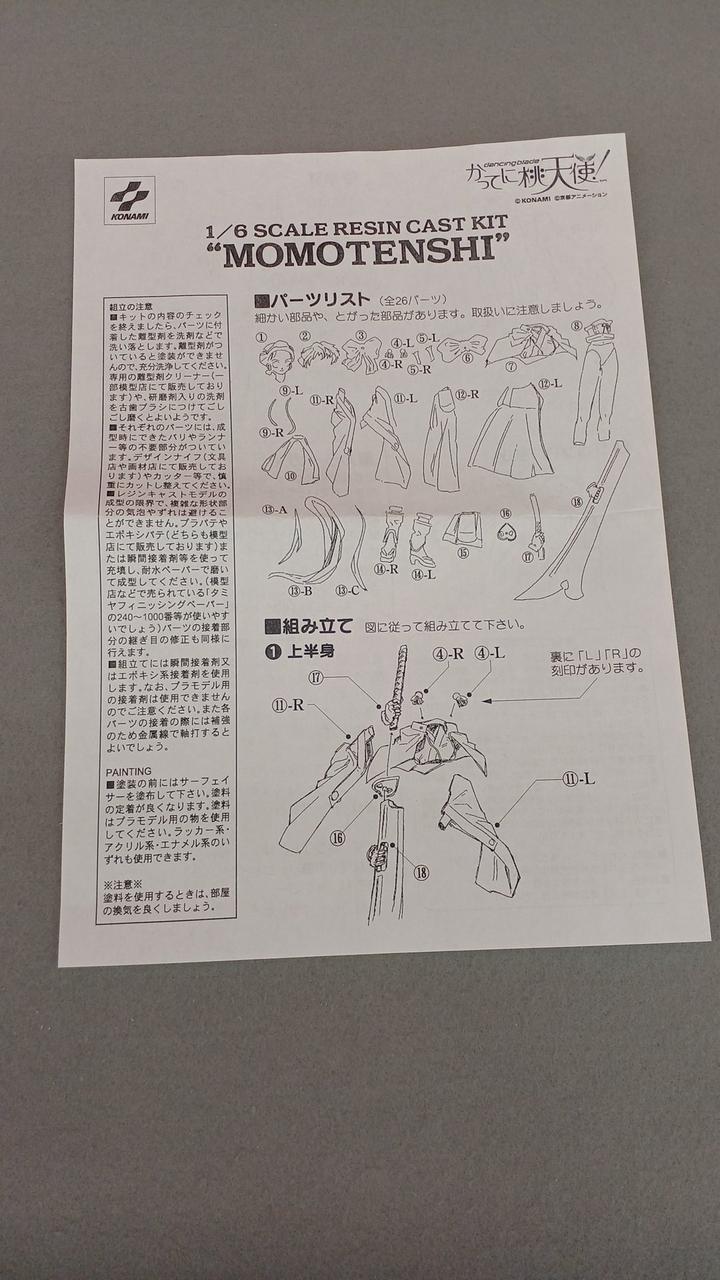 KONAMI
dancing blade
かってに桃天使!
©KONAMI ©京都アニメーション
1/6 SCALE RESIN CAST KIT
“MOMOTENSHI”
組立の注意
■キットの内容のチェック
を終えましたら、パーツに付
着した離型剤を洗剤などで
洗い落とします。離型剤がつ
いていると塗装ができませ
んので、充分洗浄してください。
専用の離型剤クリーナー(一
部模型店にて販売しており
ます)や、研磨剤入りの洗剤
を古歯ブラシにつけてごし
ごし磨くとよいようです。
■それぞれのパーツには、成
型時にできたバリやランナ
ー等の不要部分がついてい
ます。デザインナイフ(文具
店や画材店にて販売してお
ります)やカッター等で、慎
重にカットし整えてください。
■レジンキャストモデルの
成型の限界で、複雑な形状部
分の気泡やずれは避けるこ
とができません。プラパテや
エポキシパテ(どちらも模型
店にて販売しております)ま
たは瞬間接着剤等を使って
充填し、耐水ペーパーで磨い
て成型してください。(模型
店などで売られている「タミ
ヤフィニッシングペーパー」
の240〜1000番等が使いやす
いでしょう)パーツの接着部
分の継ぎ目の修正も同様に
行えます。
■組立てには瞬間接着剤又
はエポキシ系接着剤を使用
します。なお、プラモデル用
の接着剤は使用できません
のでご注意ください。また各
パーツの接着の際には補強
のため金属線で軸打すると
よいでしょう。
PAINTING
■塗装の前にはサーフェイ
サーを塗布して下さい。塗料
の定着が良くなります。塗料
はプラモデル用の物を使用
してください。ラッカー系・
アクリル系・エナメル系のい
ずれも使用できます。
※注意※
塗料を使用するときは、部屋
の換気を良くしましょう。
パーツリスト (全26パーツ)
細かい部品や、とがった部品があります。取扱いに注意しましょう。
① ② ③ ④-L ⑤-L ⑧
④-R ⑤-R ⑥ ⑦
⑨-L ⑪-R ⑪-L ⑫-R ⑫-L
⑨-R
⑩
⑬-A ⑯ ⑱
⑭-R ⑭-L ⑮ ⑰
⑬-B ⑬-C
組み立て 図に従って組み立てて下さい。
❶ 上半身
④-R ④-L
裏に「L」「R」の
刻印があります。
⑰
⑪-R
⑪-L
⑯
⑱